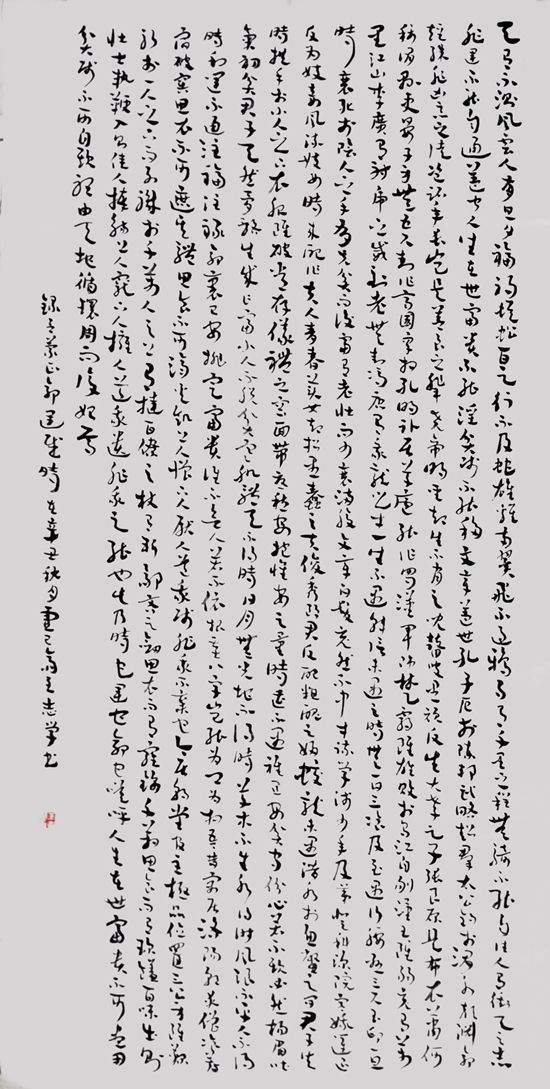 天有不测风云人有旦夕祸福蜈蚣百足行不及蛇雄鸡两翼飞不过鸦马有千里之程无骑不能自往人有冲天之志
非运不能自通盖闻人生在世富贵不能淫贫贱不能移文章盖世孔子厄于陈邦武略超群太公钓于渭水颜渊命
短殊非凶恶之徒盗跖年长岂是善良之辈尧帝明圣却生不肖之儿瞽叟愚顽反生大孝之子张良原是布衣萧何
称谓县吏晏子身无五尺封作齐国宰相孔明卧居草庐能作蜀汉军师楚霸虽雄败于乌江自刎汉王虽弱竟有万
里江山李广有射虎之威到老无封冯唐有乘龙之才一生不遇韩信未遇之时无一日三餐及至遇行腰悬三尺玉印一旦
时衰死于阴人之手有先贫而后富有老壮而少衰满腹文章白发竟然不中才疏学浅少年及第登科深院宫娥运退
反为妓妾风流妓女时来配作夫人青春美女却招愚蠢之夫俊秀郎君反配粗丑之妇蛟龙未遇潜水于鱼鳖之间君子失
时拱手于小人之下衣服虽破常存仪礼之容面带忧愁每抱怀安之量时遭不遇只宜安贫守份心若不欺必然扬眉吐
气初贫君子天然骨骼生成乍富小人不脱贫寒肌体天不得时日月无光地不得时草木不生水不得时风浪不平人不得
时利运不通注福注禄命里已安排定富贵谁不欲人若不依根基八字岂能为卿为相吾昔寓居洛阳朝求僧餐暮
宿破窑思衣不可遮其体思食不可济其饥上人憎下人厌人道我贱非我不弃也今居朝堂官至极品位置三公身虽鞠
躬于一人之下而列职于千万人之上有挞百僚之杖有斩鄙吝之剑思衣而有罗锦千箱思食而有珍馐百味出则
壮士执鞭入则佳人捧觞上人宠下人拥人道我贵非我之能也此乃时也运也命也嗟呼人生在世富贵不可尽用
贫贱不可自欺听由天地循环周而复始焉
录吕蒙正命运赋时在辛丑秋月志学书